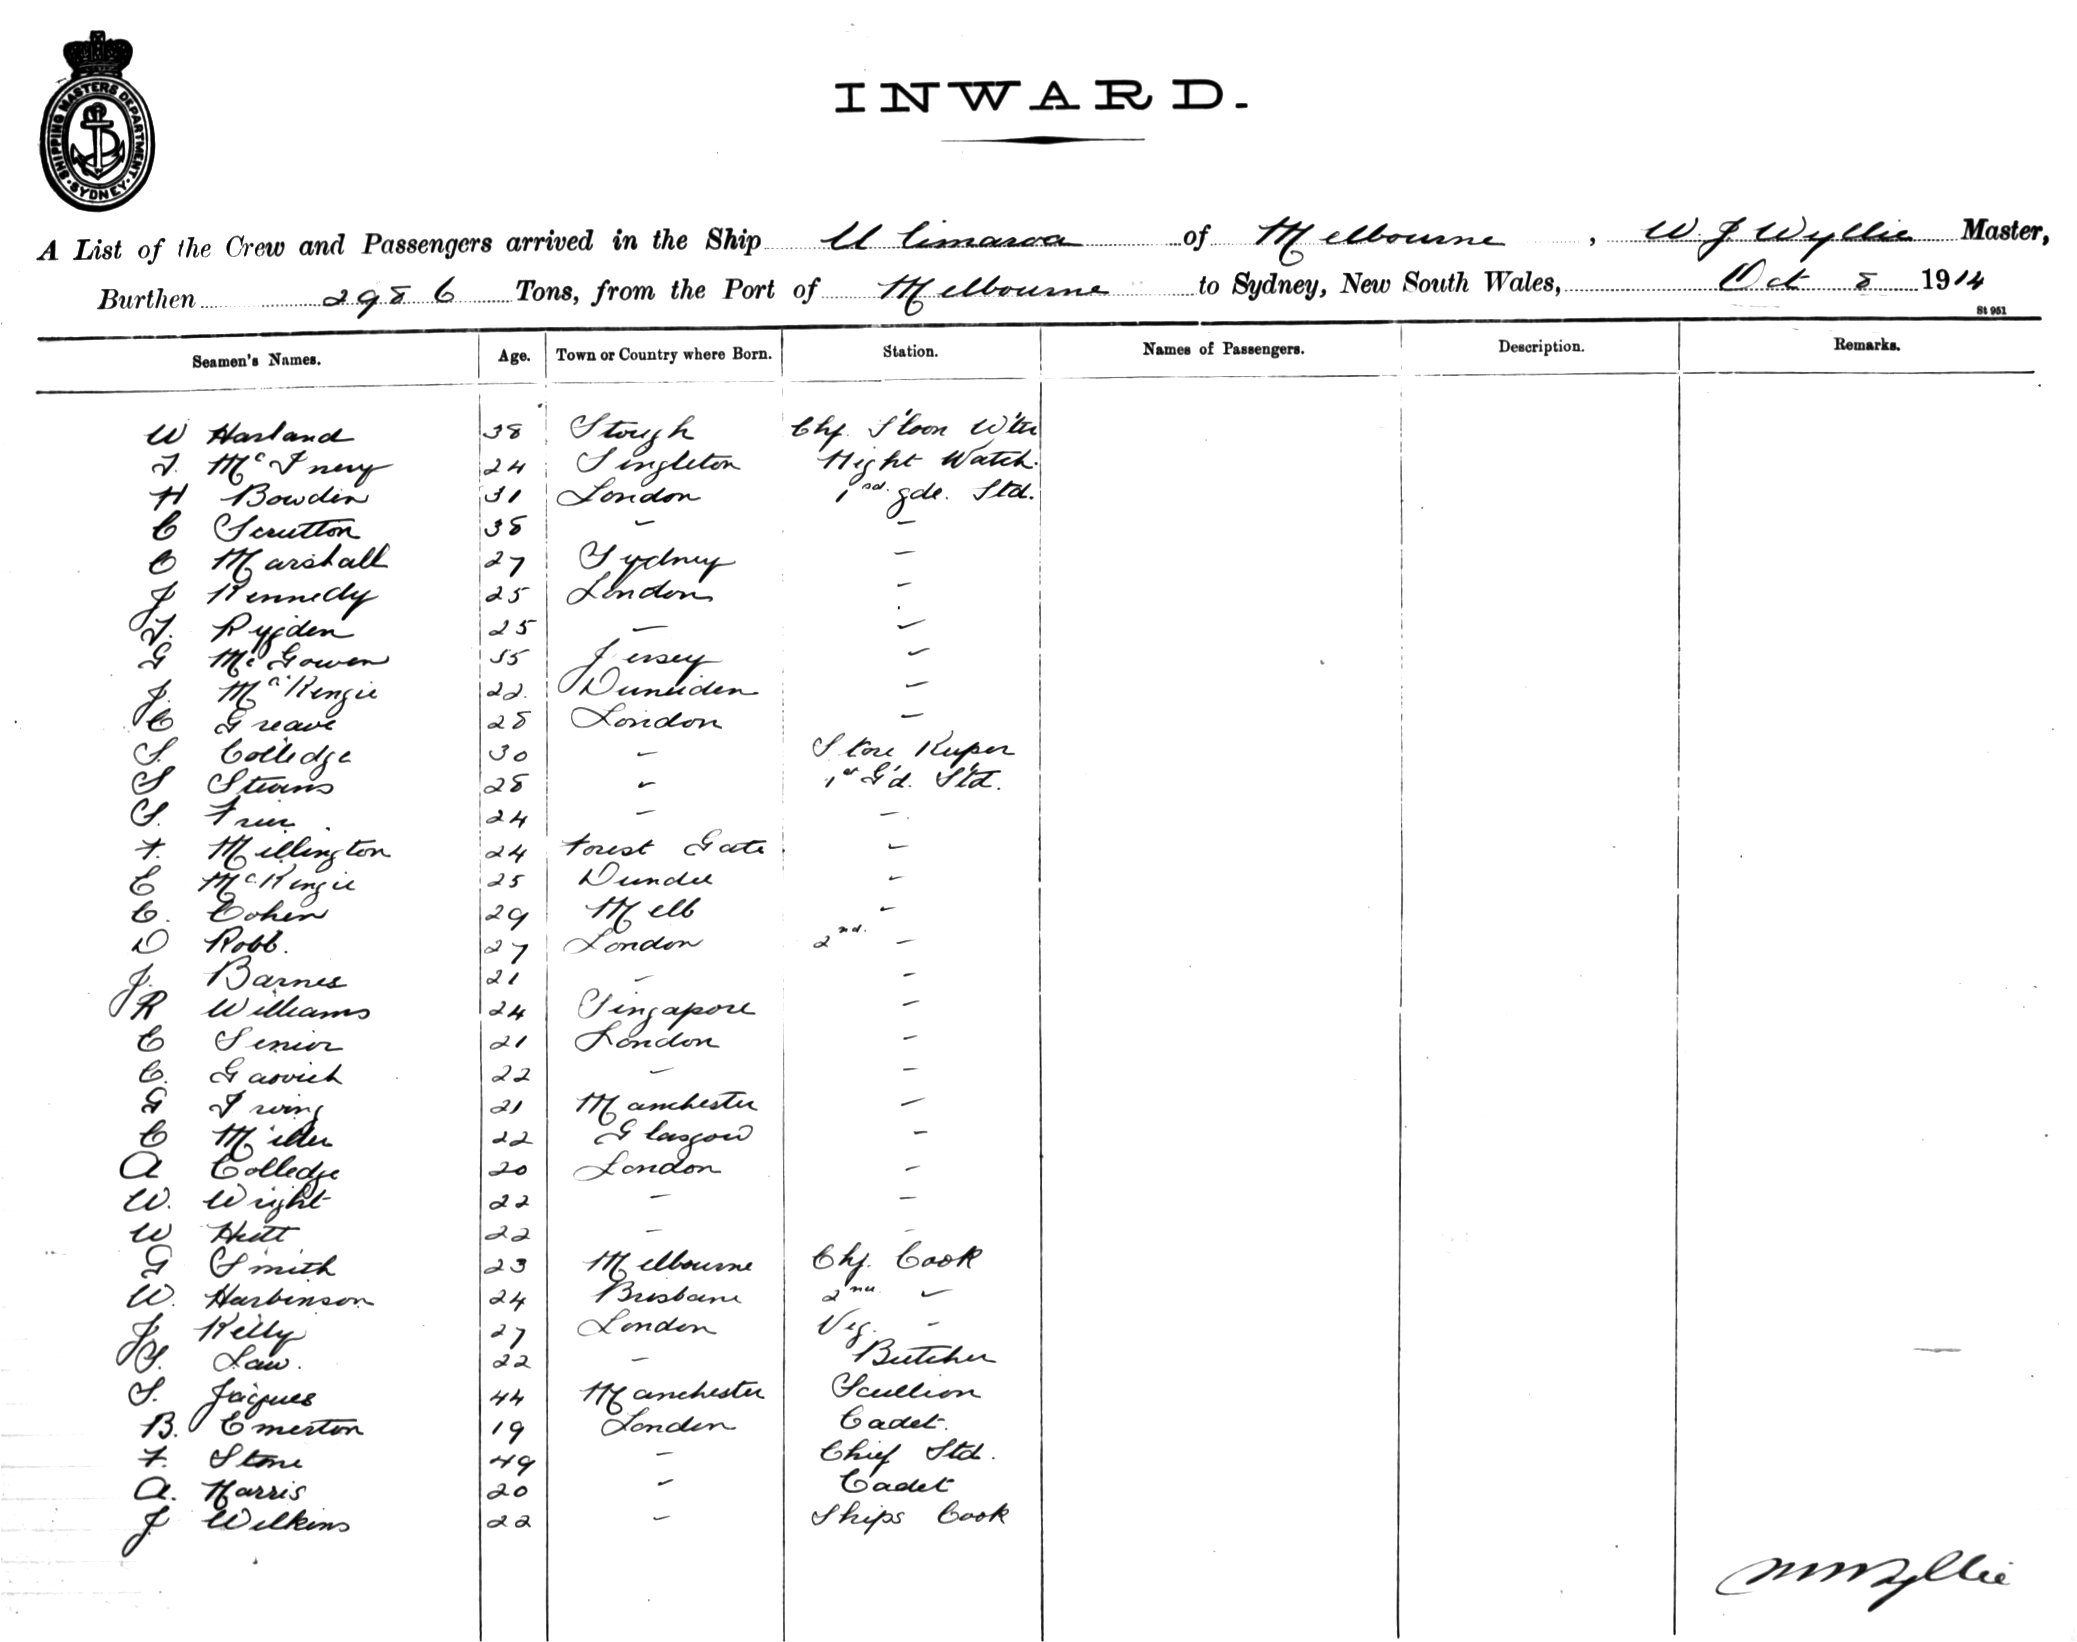 SHIPPING MASTERS DEPARTMENT · SYDNEY ·
INWARD.
A List of the Crew and Passengers arrived in the Ship Ulimaroa of Melbourne, W. J Wyllie Master,
Burthen 2986 Tons, from the Port of Melbourne to Sydney, New South Wales, Oct 8 1914
St 951
Seamen's Names. Age. Town or Country where Born. Station. Names of Passengers. Description. Remarks.
W Harland 38 Slough Chf. S'loon W'ter
T. McInery 24 Singleton Night Watch.
H Bowden 31 London 1 gde. Std.
C Scrutton 38 - -
C Marshall 27 Sydney -
J Kennedy 25 London -
T. Rygden 25 - -
G McGowen 35 Jersey -
J. McKenzie 22 Duneiden -
C Greave 28 London -
S. Colledge 30 - Store Keeper
S Stevens 28 - 1st G'd. St'd.
S. Frier 24 - -
F. Millington 24 Forest Gate -
C McKenzie 25 Dundee -
C. Cohen 29 Melb -
D Robb. 27 London 2nd. -
J. Barnes 21 - -
R Williams 24 Singapore -
C Senior 21 London -
C. 22 - -
G Irving 21 Manchester -
C Miller 22 Glasgow -
A Colledge 20 London -
W. Wright 22 - -
W Hutt 22 - -
G Smith 23 Melbourne Chf. Cook
W. Harbinson 24 Brisbane 2nd -
J Kelly 27 London Veg. -
S. Law. 22 - Butcher
S. Jaques 44 Manchester Scullion
B. Emerton 19 London Cadet.
F. Stone 49 - Chief Std.
A. Harris 20 - Cadet
J Wilkins 22 - Ships Cook
W J Wyllie